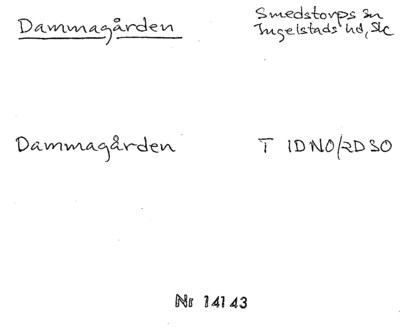 Dammagården
Smedstorps sn
Ingelstads hd, Sk
Dammagården
T 1D NO/2D SO
Nr 14143